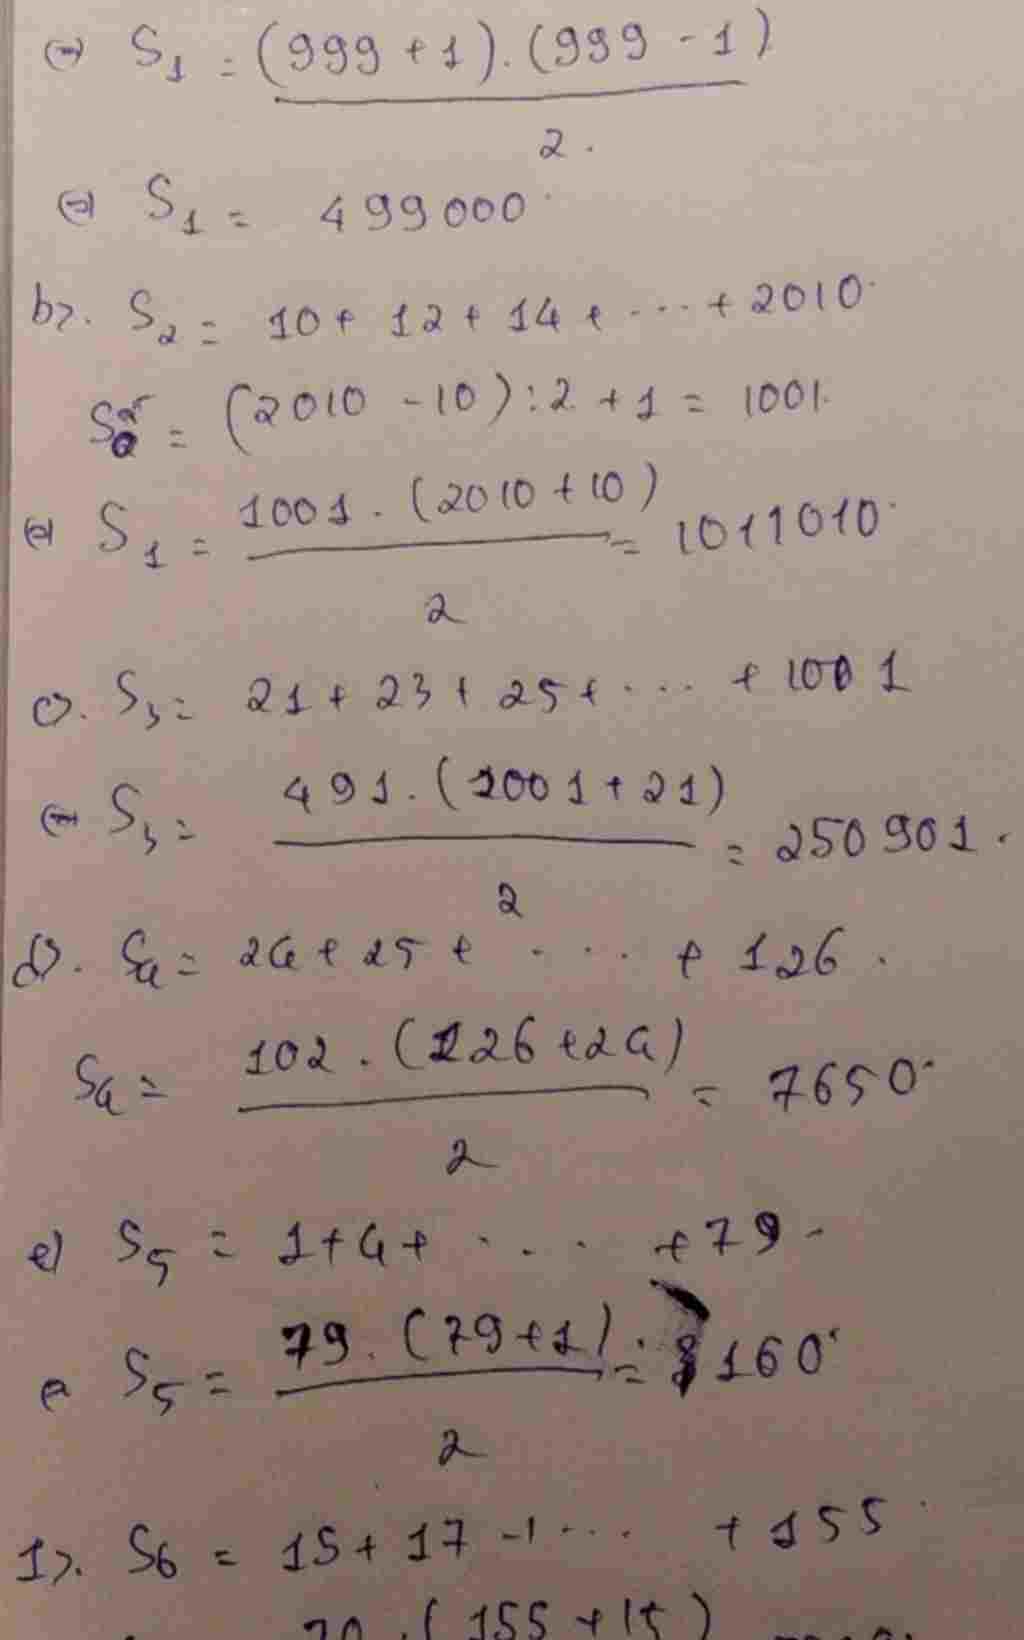 (=) S1 = (999 + 1).(999 - 1)
2.
(=) S1 = 499000
b>. S2 = 10 + 12 + 14 + ... + 2010
= (2010 - 10):2 + 1 = 1001.
(=) S1 = 1001.(2010 + 10) = 1011010
2
c). S3 = 21 + 23 + 25 + ... + 1001
(=) S3 = 491.(1001 + 21) = 250901.
2
d). S4 = 24 + 25 + ... + 126.
S4 = 102.(126 + 24) = 7650
2
e) S5 = 1 + 4 + ... + 79
S5 = 79.(79 + 1) = 160
2
1>. S6 = 15 + 17 + ... + 155
70.(155 + 15)